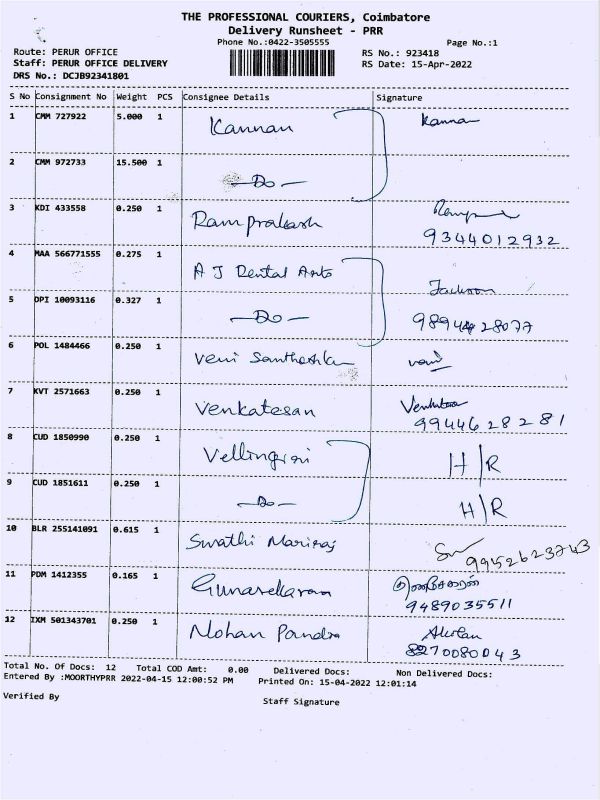 THE PROFESSIONAL COURIERS, Coimbatore
Delivery Runsheet - PRR
Phone No.:0422-3505555
Page No.:1
Route: PERUR OFFICE
RS No.: 923418
Staff: PERUR OFFICE DELIVERY
RS Date: 15-Apr-2022
DRS No.: DCJB92341801
S No Consignment No Weight PCS Consignee Details Signature
1 CMM 727922 5.000 1 Kannan Kannan
2 CMM 972733 15.500 1 — Do —
3 KDI 433558 0.250 1 Ram Prakash
9344012932
4 MAA 566771555 0.275 1 A J Dental Arts Jackson
5 DPI 10093116 0.327 1 — Do —
6 POL 1484466 0.250 1 Veni
7 KVT 2571663 0.250 1 Venkatesan
9944628281
8 CUD 1850990 0.250 1 Vellingiri H/R
9 CUD 1851611 0.250 1 — Do — H/R
10 BLR 255141091 0.615 1 Swathi Mariraj
9952623743
11 PDM 1412355 0.165 1 Gunasekaran குணசேகரன்
9489035511
12 IXM 501343701 0.250 1 Mohan
8270080043
Total No. Of Docs: 12 Total COD Amt: 0.00 Delivered Docs: Non Delivered Docs:
Entered By :MOORTHYPRR 2022-04-15 12:00:52 PM Printed On: 15-04-2022 12:01:14
Verified By
Staff Signature